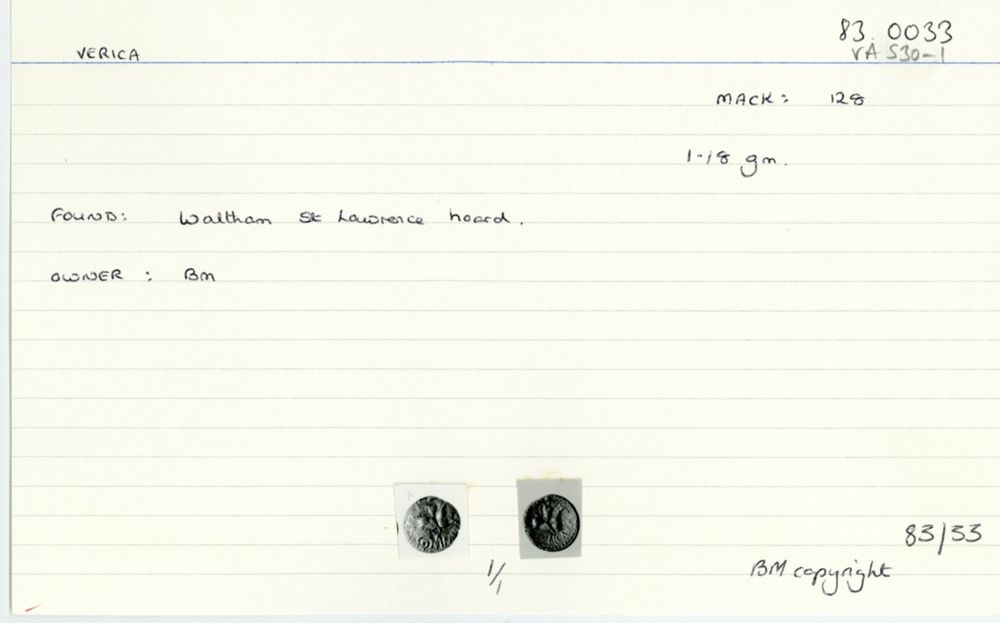 83.0033
VERICA
VA 530-1
MACK: 128
1.18 gm.
FOUND: Waltham St Lawrence hoard.
OWNER: BM
83/33
1/1
BM copyright